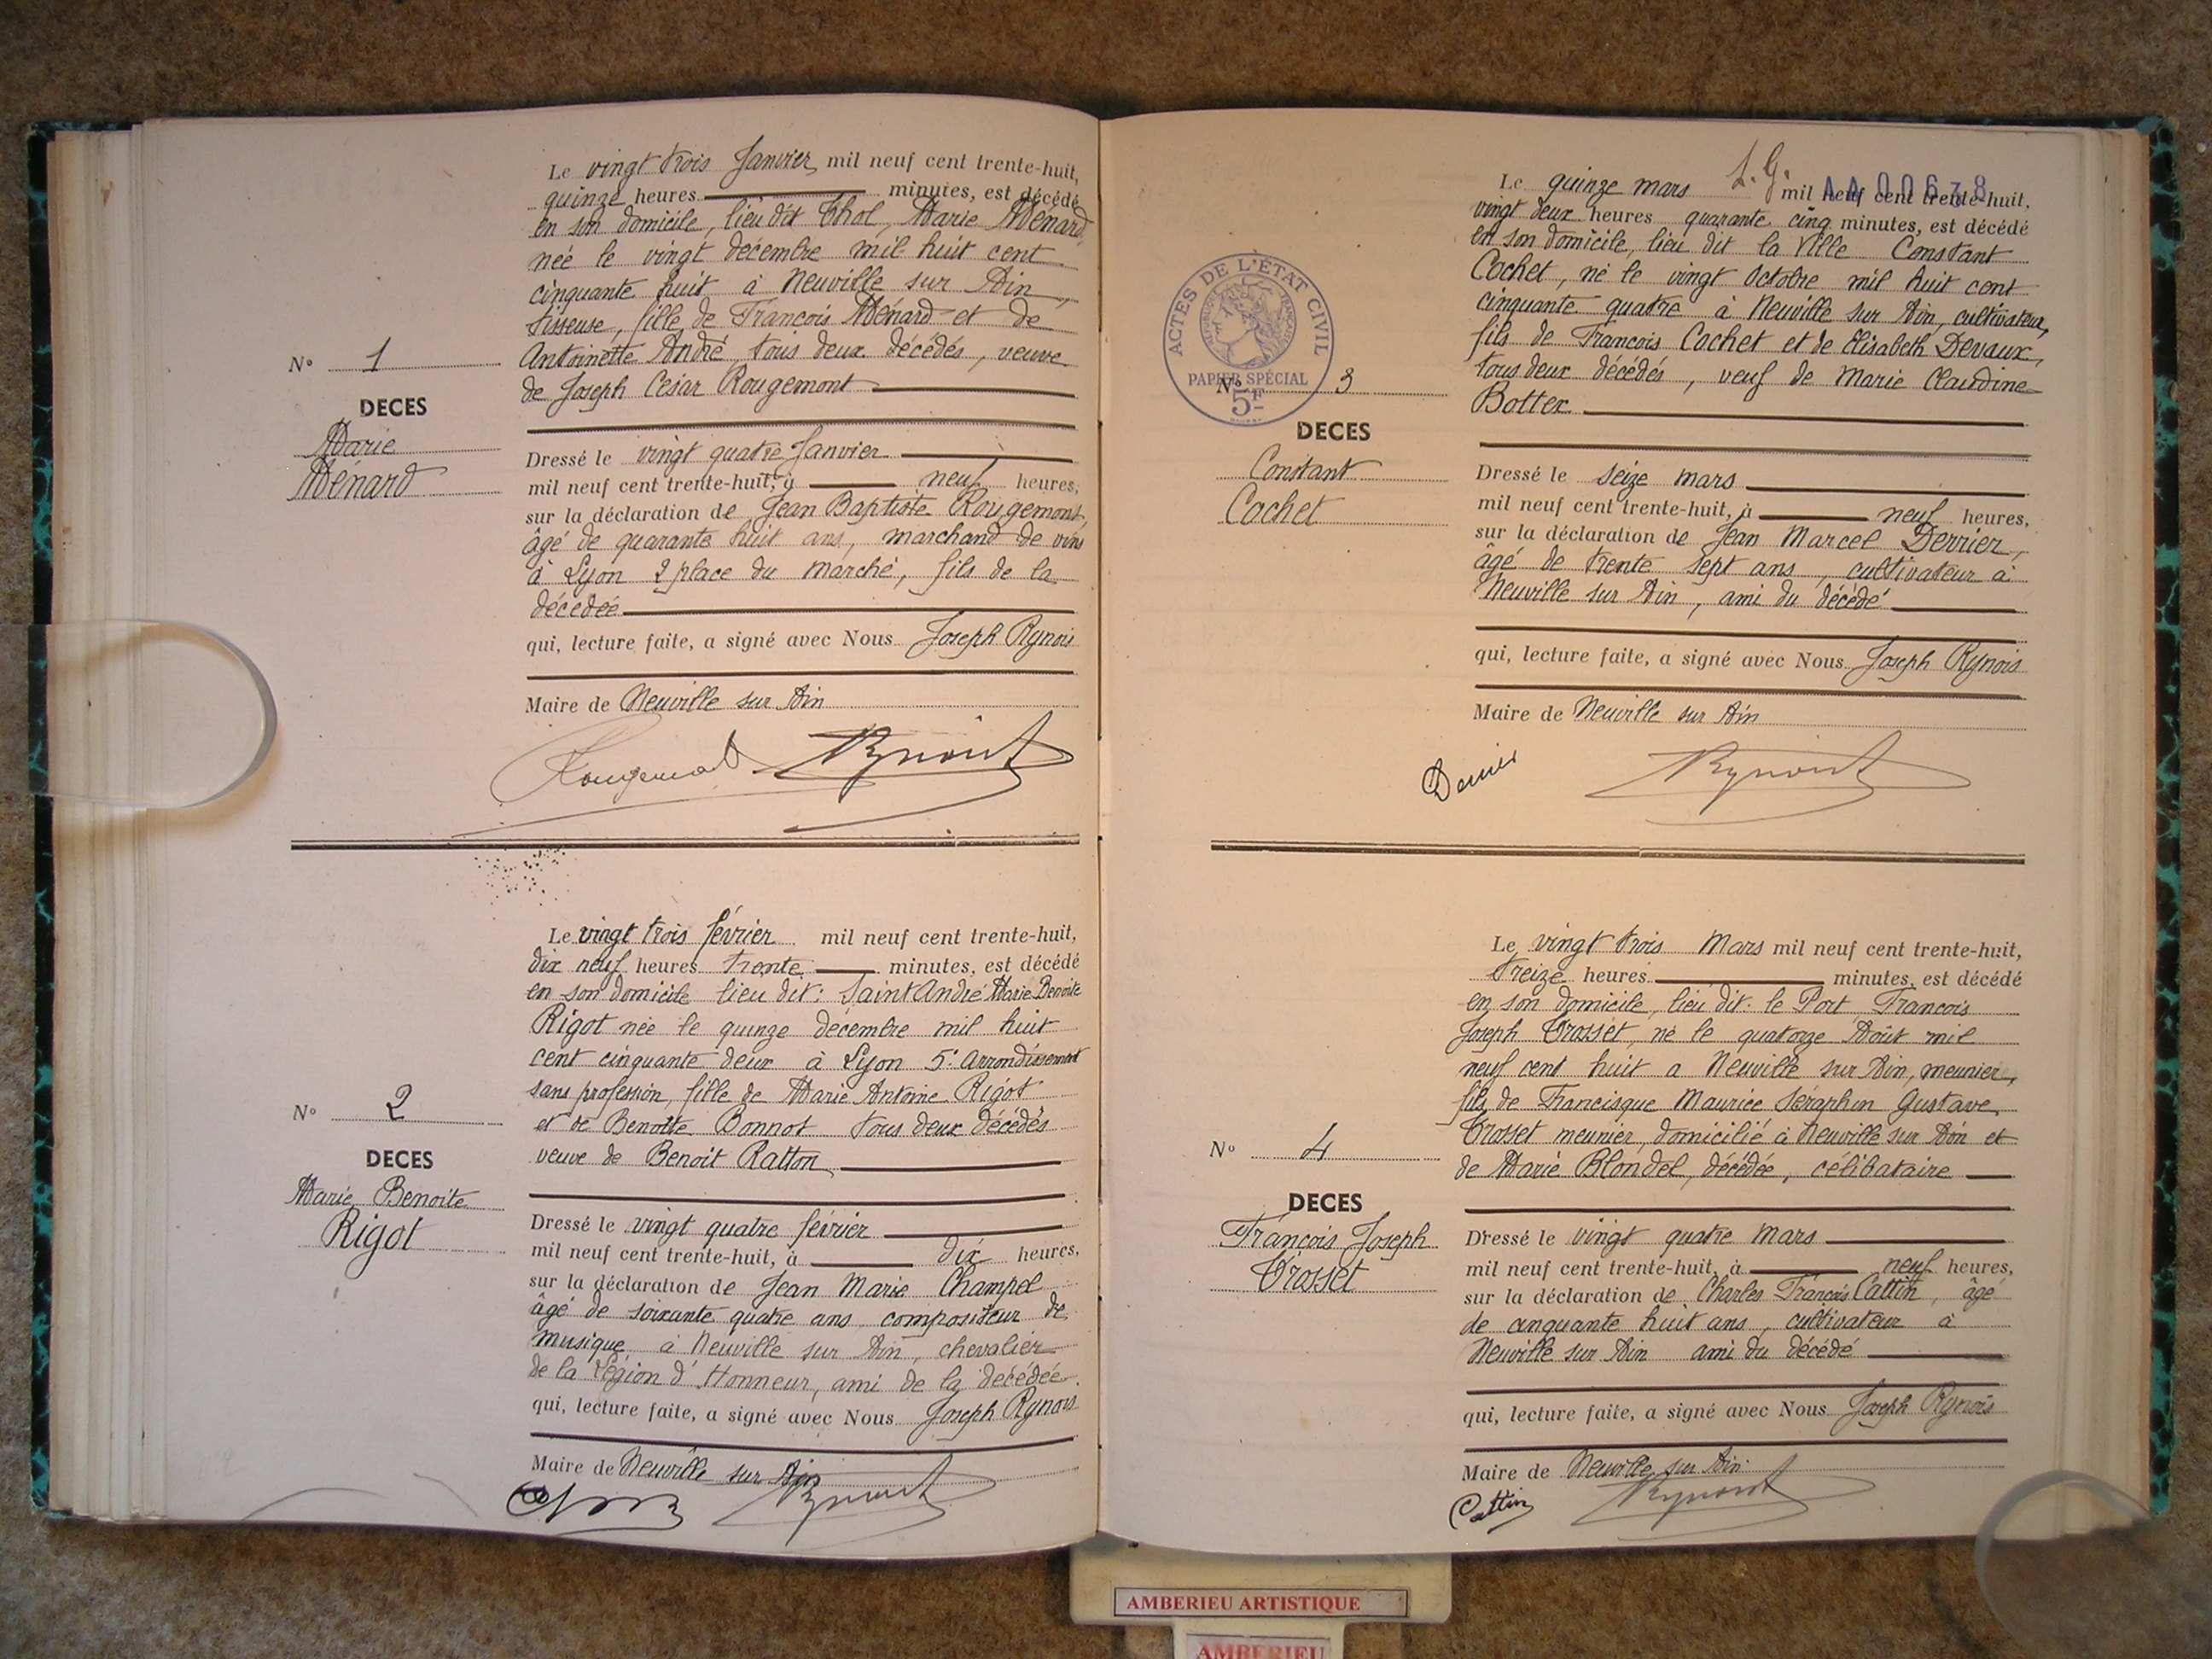 Le vingt trois Janvier mil neuf cent trente-huit,
quinze heures minutes, est décédé
en son domicile, lieu dit Thol, Marie Ménard,
née le vingt décembre mil huit cent
cinquante huit à Neuville sur Ain,
tisseuse, fille de François Ménard et de
Antoinette André, tous deux décédés, veuve
de Joseph César Rougemont
N° 1
DECES
Marie
Ménard
Dressé le vingt quatre Janvier
mil neuf cent trente-huit, à neuf heures,
sur la déclaration de Jean Baptiste Rougemont,
âgé de quarante huit ans, marchand de vins
à Lyon 2 place du marché, fils de la
décédée
qui, lecture faite, a signé avec Nous Joseph Rynois
Maire de Neuville sur Ain
Le vingt trois février mil neuf cent trente-huit,
dix neuf heures trente minutes, est décédé
en son domicile lieu dit: Saint André Marie Benoite
Rigot née le quinze décembre mil huit
cent cinquante deux à Lyon 5e Arrondissement
sans profession, fille de Marie Antoine Rigot
et de Benoîte Bonnot tous deux décédés
veuve de Benoit Ratton
N° 2
DECES
Marie Benoite
Rigot
Dressé le vingt quatre février
mil neuf cent trente-huit, à dix heures,
sur la déclaration de Jean Marie Champel
âgé de soixante quatre ans, compositeur de
musique à Neuville sur Ain, chevalier
de la Légion d'Honneur, ami de la décédée.
qui, lecture faite, a signé avec Nous Joseph Rynois
Maire de Neuville sur Ain
L.G.
Le quinze mars mil neuf cent trente-huit,
vingt deux heures quarante cinq minutes, est décédé
en son domicile, lieu dit la Ville Constant
Cochet, né le vingt Octobre mil huit cent
cinquante quatre à Neuville sur Ain, cultivateur,
fils de François Cochet et de Elisabeth Devaux,
tous deux décédés, veuf de Marie Claudine
Botter
ACTES DE L'ÉTAT CIVIL
PAPIER SPÉCIAL
5F
N° 3
DECES
Constant
Cochet
Dressé le seize mars
mil neuf cent trente-huit, à neuf heures,
sur la déclaration de Jean Marcel Derrier,
âgé de trente sept ans, cultivateur à
Neuville sur Ain, ami du décédé
qui, lecture faite, a signé avec Nous Joseph Rynois
Maire de Neuville sur Ain
Le vingt trois Mars mil neuf cent trente-huit,
treize heures minutes, est décédé
en son domicile, lieu dit: le Port François
Joseph Trosset, né le quatorze Août mil
neuf cent huit a Neuville sur Ain, meunier,
fils de Francisque Maurice Séraphin Gustave
Trosset meunier, domicilié à Neuville sur Ain et
de Marie Blondel, décédée, célibataire
N° 4
DECES
François Joseph
Trosset
Dressé le vingt quatre mars
mil neuf cent trente-huit, à neuf heures,
sur la déclaration de Charles François Cattin, âgé
de cinquante huit ans, cultivateur à
Neuville sur Ain ami du décédé
qui, lecture faite, a signé avec Nous Joseph Rynois
Maire de Neuville sur Ain
Cattin
AMBERIEU ARTISTIQUE
AMBERIEU